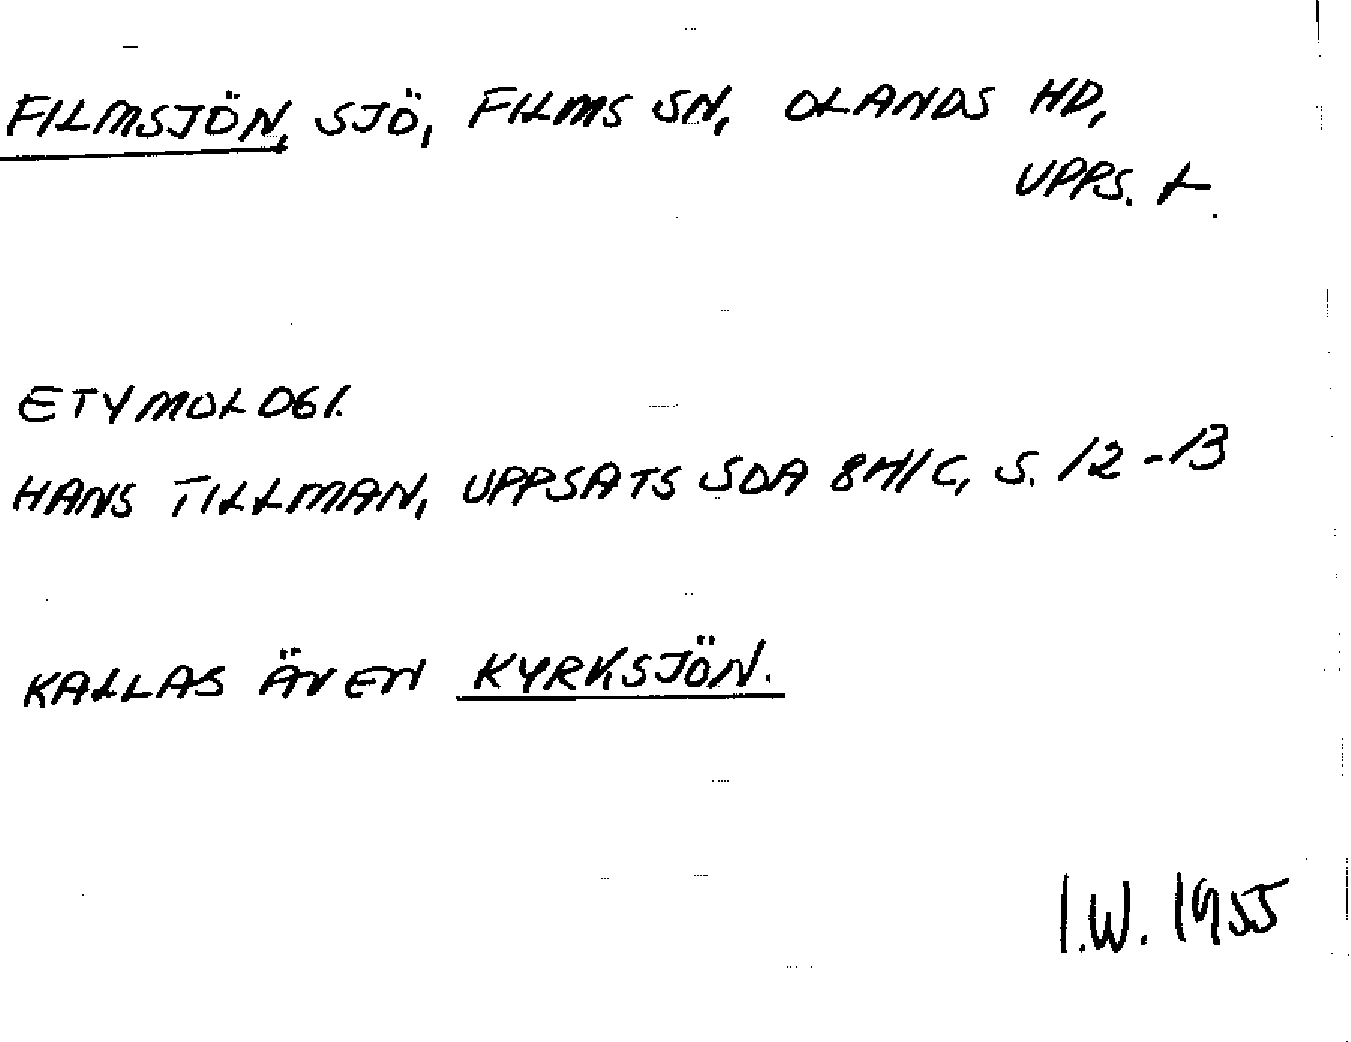 FILMSJÖN, SJÖ, FILMS SN, OLANDS HD,
UPPS. L.
ETYMOLOGI.
HANS TILLMAN, UPPSATS SOA 8H/C, S. 12-13
KALLAS ÄVEN KYRKSJÖN.
I.W. 1955